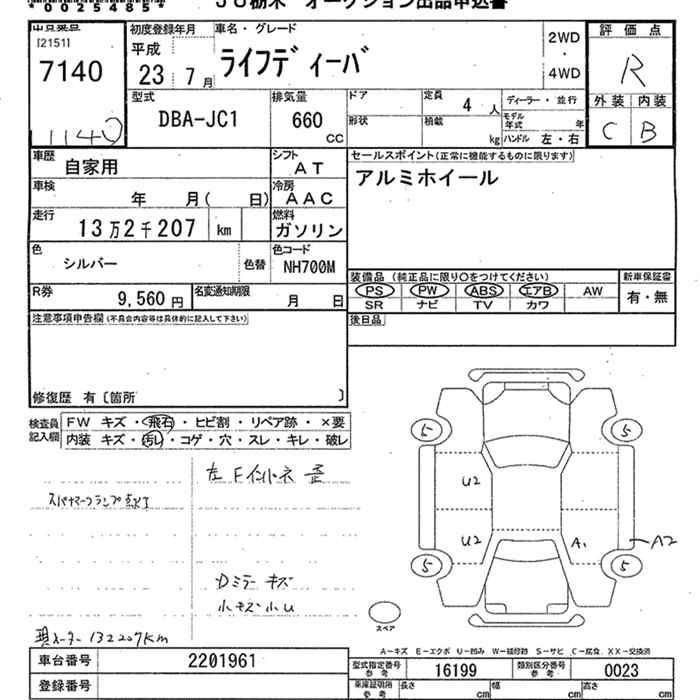 *0025485*
JU栃木 オークション出品申込書
出品番号
[2151]
7140
1140
初度登録年月
平成
23 7月
車名・グレード
ライフディーバ
2WD
・
4WD
評価点
R
外装 内装
C B
型式
DBA-JC1
排気量
660
CC
ドア
形状
定員 4 人
積載 kg
ディーラー・並行
モデル年式 年
ハンドル 左・右
車歴 自家用
シフト AT
車検 年 月( 日)
冷房 AAC
走行 13万2千207 km
燃料 ガソリン
色 シルバー 色替
色コード NH700M
R券 9,560円
名変通知期限 月 日
セールスポイント(正常に機能するものに限ります)
アルミホイール
装備品 (純正品に限り○をつけてください)
PS PW ABS エアB AW
SR ナビ TV カワ
新車保証書
有・無
後日品
注意事項申告欄(不具合内容等は具体的に記入して下さい)
修復歴 有〔箇所 〕
検査員記入欄
FW キズ・飛石・ヒビ割・リペア跡・×要
内装 キズ・汚レ・コゲ・穴・スレ・キレ・破レ
左Fインナーネ 歪
スペナマーフランプ点灯
Dミラーキズ
小キズ小U
現メーター132207km
5 5
U2
U2 A1 A2
5 5
スペア
A−キズ E−エクボ U−凹み W−補修跡 S−サビ C−腐食 XX−交換済
車台番号 2201961
登録番号
型式指定番号 参考 16199
類別区分番号 参考 0023
車庫証明用 参考 長さ cm 幅 cm 高さ cm